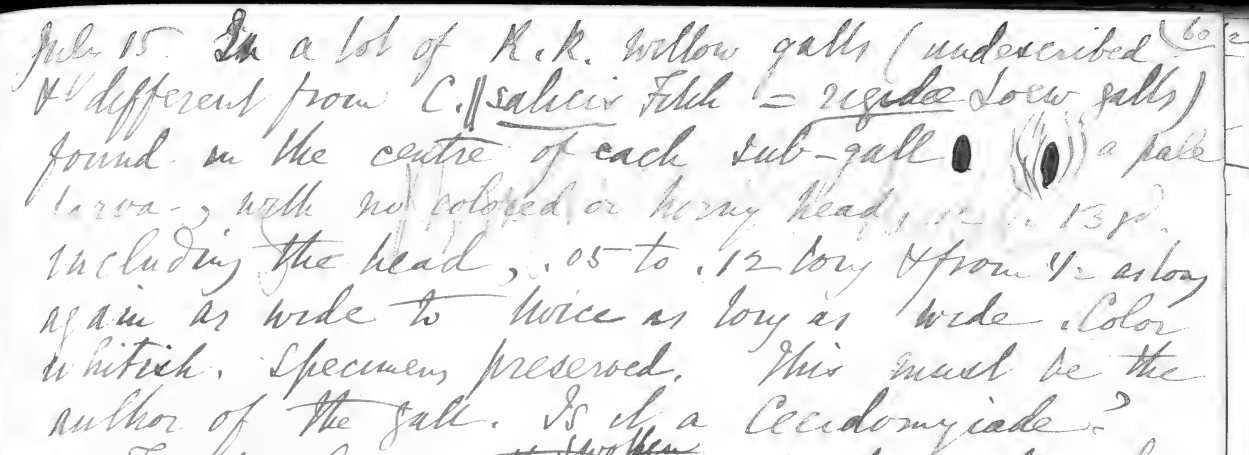 July 15. In a lot of R.R. Willow galls (undescribed
& different from C. salicis Fitch = rigidae Loew galls)
found in the centre of each sub-gall a pale
larva, with no colored or horny head, 12 or 13 jd.
including the head, .05 to .12 long & from 1/2 as long
again as wide to twice as long as wide. Color
whitish. Specimens preserved. This must be the
author of the gall. Is it a Cecidomyiade?
swollen